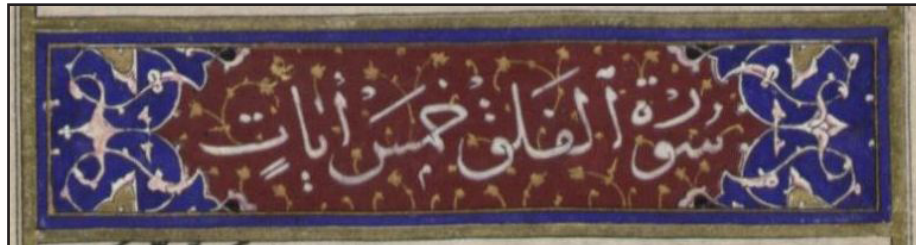 سُورة ٱلفلق خمسَ أيَاتٍ